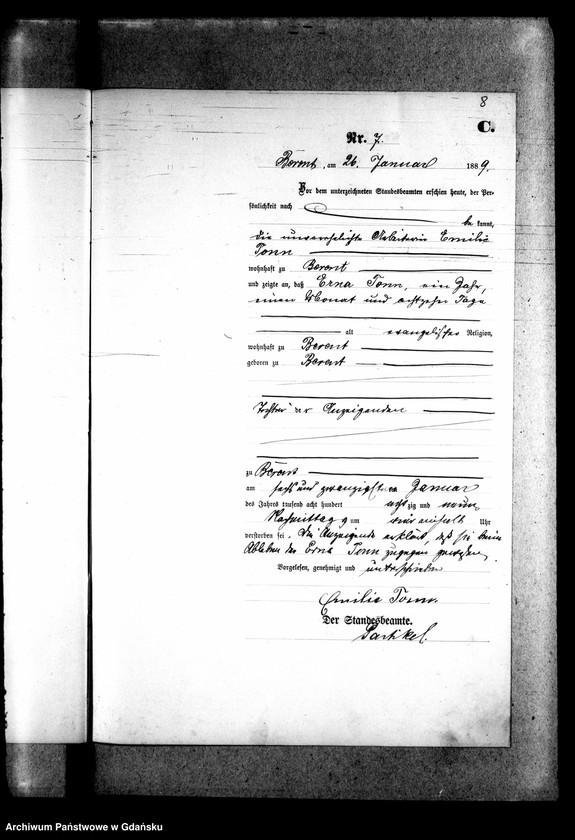 8
C.
Nr. 7.
Berent, am 26. Januar 1889.
Vor dem unterzeichneten Standesbeamten erschien heute, der Per-
sönlichkeit nach
be kannt,
die unverehelichte Arbeiterin Emilie
Tonn
wohnhaft zu Berent
und zeigte an, daß Erna Tonn, ein Jahr,
einen Monat und achtzehn Tage
alt evangelischer Religion,
wohnhaft zu Berent
geboren zu Berent
Tochter der Anzeigenden
zu Berent
am sechs und zwanzigsten Januar
des Jahres tausend acht hundert acht zig und neun
Nachmittag s um vier einhalb Uhr
verstorben sei. Die Anzeigende erklärt, daß sie beim
Ableben der Erna Tonn zugegen gewesen.
Vorgelesen, genehmigt und unterschrieben
Emilie Tonn.
Der Standesbeamte.
Partikel.
Archiwum Państwowe w Gdańsku